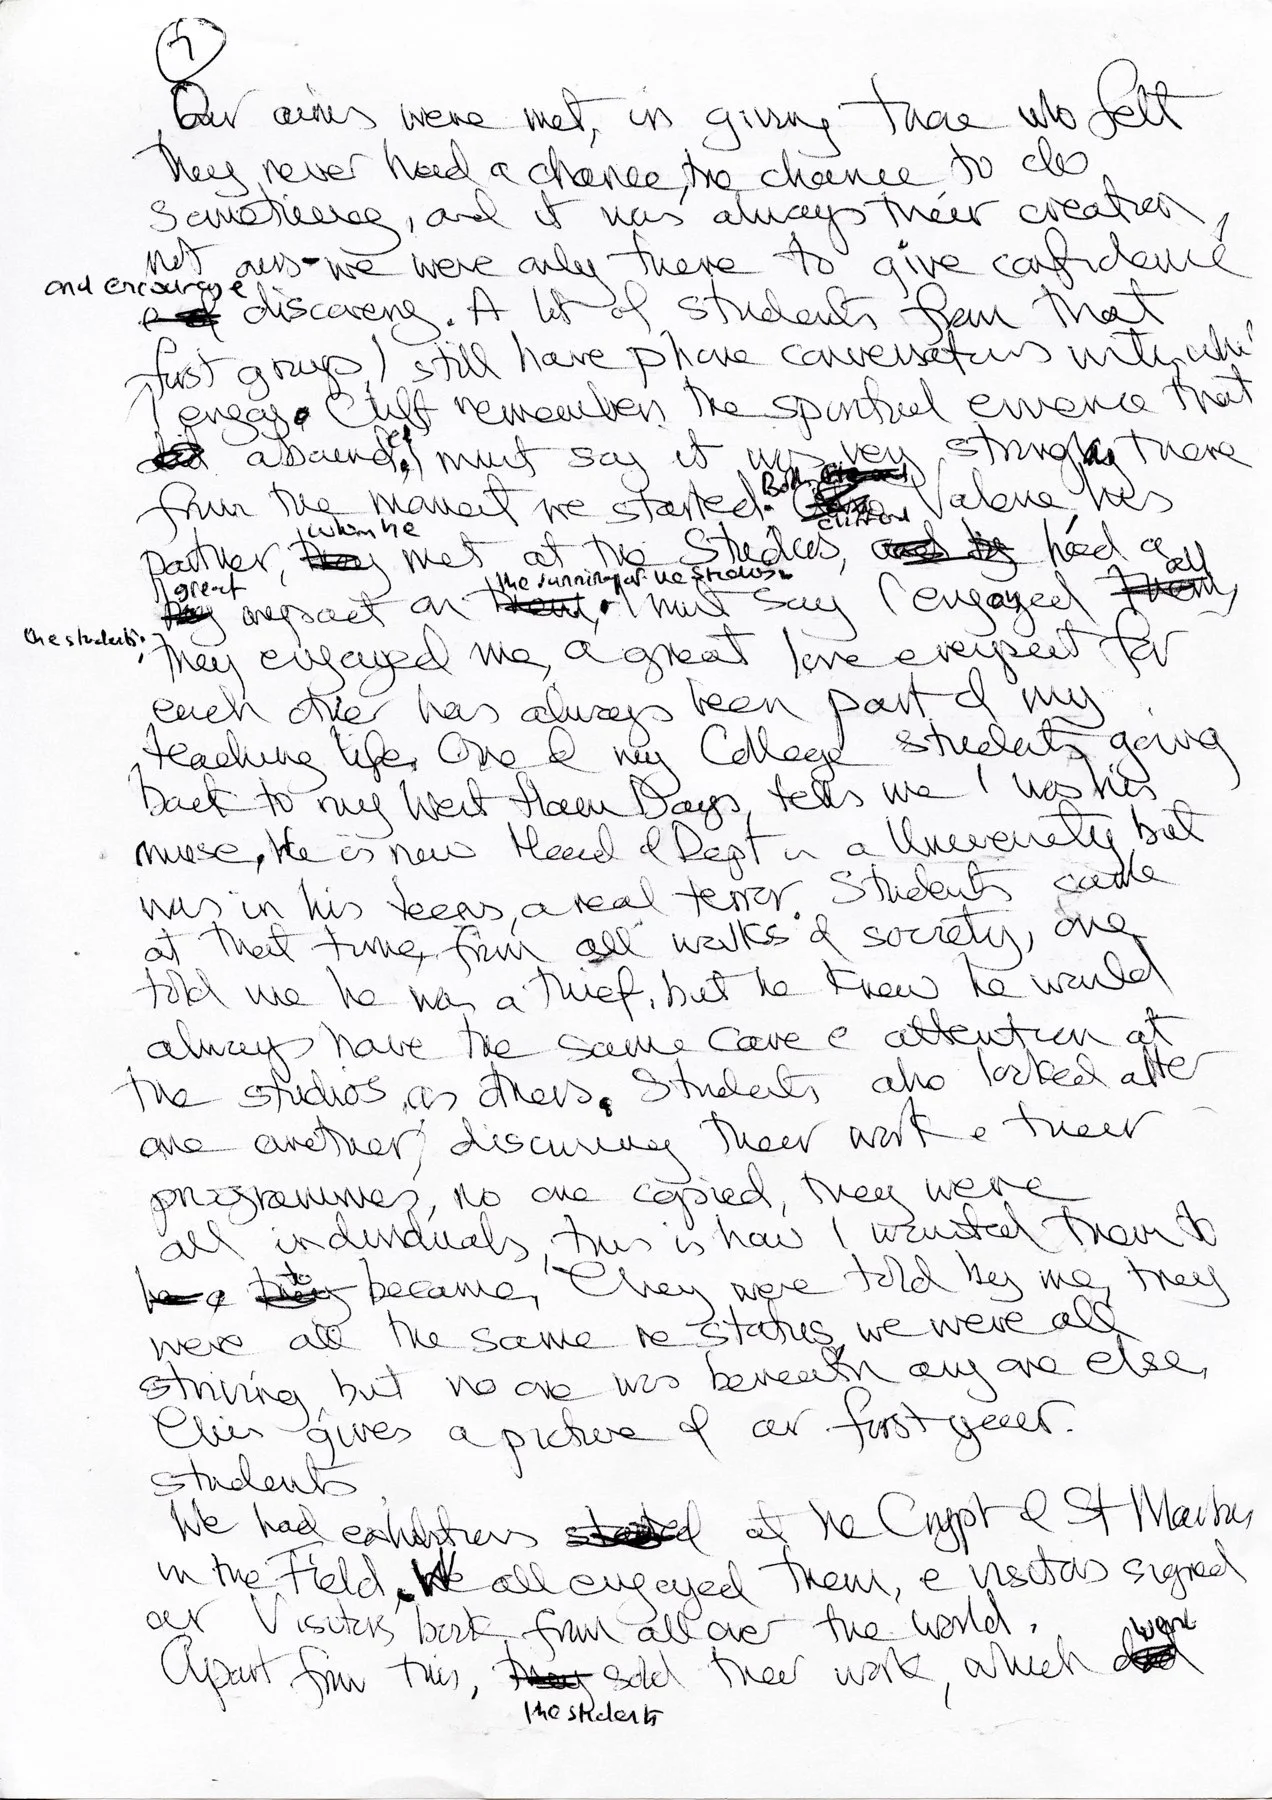 7
Our aims were met, in giving those who felt
they never had a chance, the chance to do
something, and it was always their creation,
not ours - we were only there to give confidence
and encourage
discovery. A lot of students from that
first group, I still have phone conversations with, which
I enjoy. Cliff remembers the spiritual essence that
abounded, I must say it was very strong there
from the moment we started. Both Clifford Valerie, his
partner, whom he met at the Studios, had a
great impact on the running of the studios. I must say I enjoyed all
the students,
they enjoyed me, a great love & respect for
each other has always been part of my
teaching life. One of my College students going
back to my West Ham Days, tells me I was his
muse, He is now Head of Dept in a University, but
was in his teens, a real terror. Students came
at that time, from all walks of society, one
told me he was a thief, but he knew he would
always have the same care & attention at
the studios, as others. Students also looked after
one another, discussing their work & their
programmes, no one copied, they were
all individuals, this is how I wanted them to
to become, They were told by me, they
were all the same re status, we were all
striving, but no one was beneath anyone else,
This gives a picture of our first year.
students
We had exhibitions at the Crypt of St Martins
in the Field, We all enjoyed them, & visitors signed
our Visitors book from all over the world.
Apart from this, sold their work, which were
the students